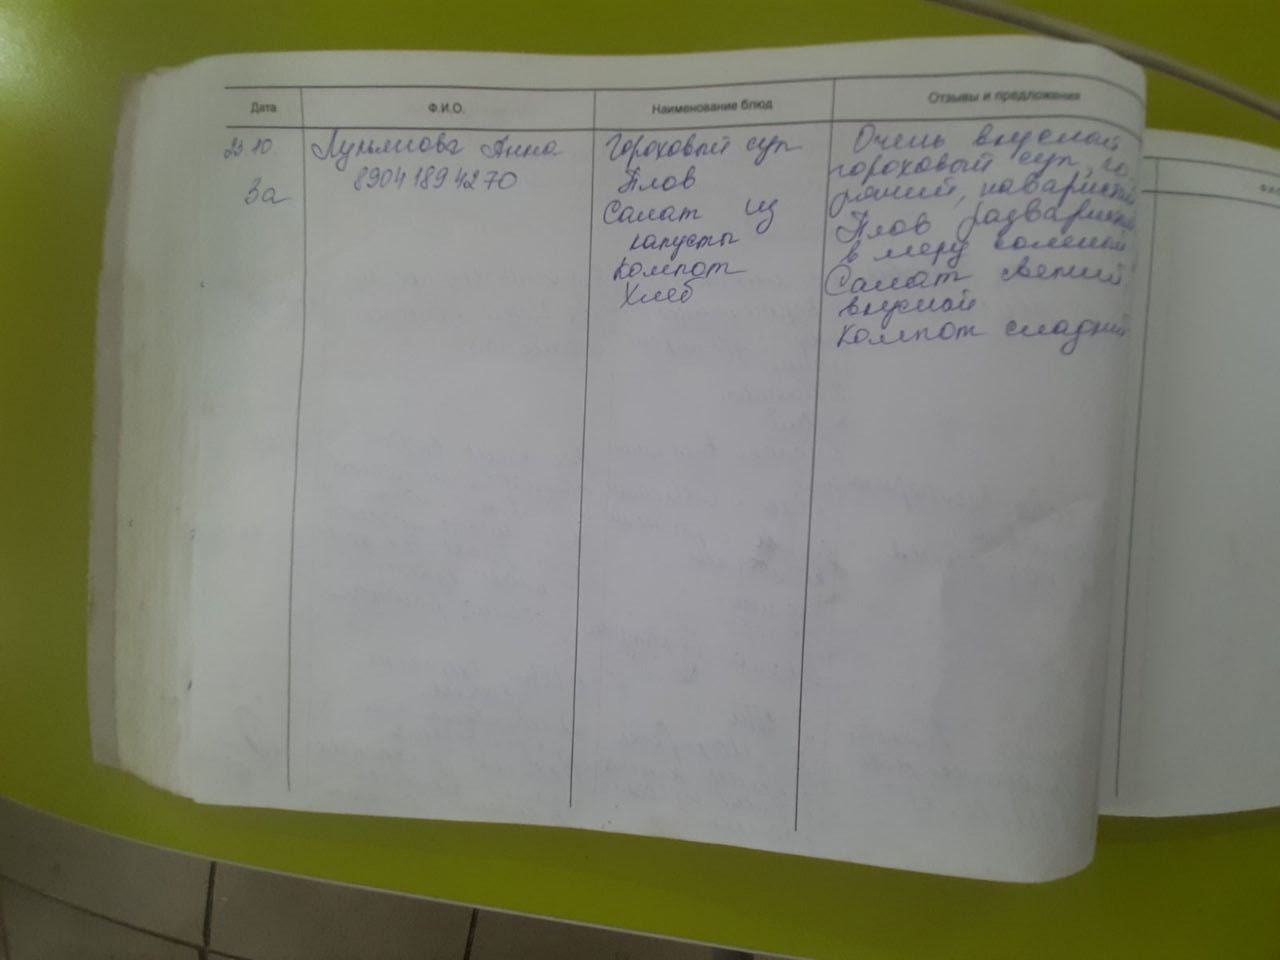 Дата
Ф.И.О.
Наименование блюд
Отзывы и предложения
10.
3а
Анна
89041894270
Гороховый суп
Плов
Салат из
капусты
Компот
Хлеб
Очень вкусный
гороховый суп, го
рячий, наваристый
Плов
в меру соленый
Салат свежий
вкусный
Компот сладкий